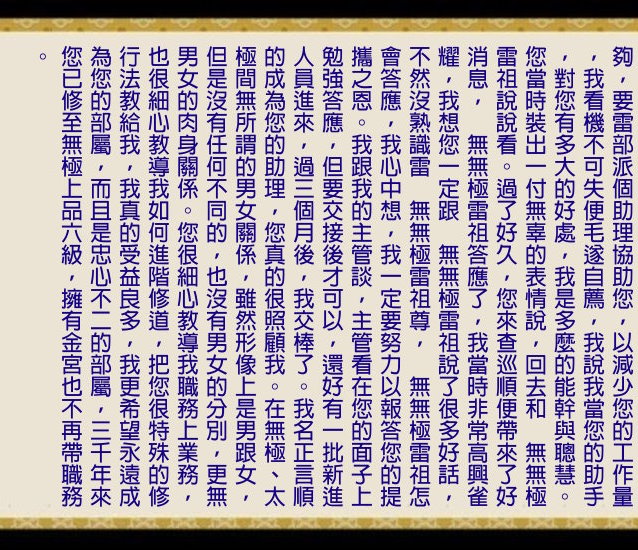 夠，要雷部派個助理協助您，以減少您的工作量
，我看機不可失便毛遂自薦，我說我當您的助手
，對您有多大的好處，我是多麼的能幹與聰慧。
您當時裝出一付無辜的表情說，回去和　無無極
雷祖說說看。過了好久，您來查巡順便帶來了好
消息，　無無極雷祖答應了，我當時非常高興雀
耀，我想您一定跟　無無極雷祖說了很多好話，
不然沒熟識雷　無無極雷祖尊，　無無極雷祖怎
會答應，我心中想，我一定要努力以報答您的提
攜之恩。我跟我的主管談，主管看在您的面子上
勉強答應，但要交接後才可以，還好有一批新進
人員進來，過三個月後，我交棒了。我名正言順
的成為您的助理，您真的很照顧我。在無極、太
極間無所謂的男女關係，雖然形像上是男跟女，
但是沒有任何不同的，也沒有男女的分別，更無
男女的肉身關係。您很細心教導我職務上業務，
也很細心教導我如何進階修道，把您很特殊的修
行法教給我，我真的受益良多，我更希望永遠成
為您的部屬，而且是忠心不二的部屬，三千年來
您已修至無極上品六級，擁有金宮也不再帶職務
。